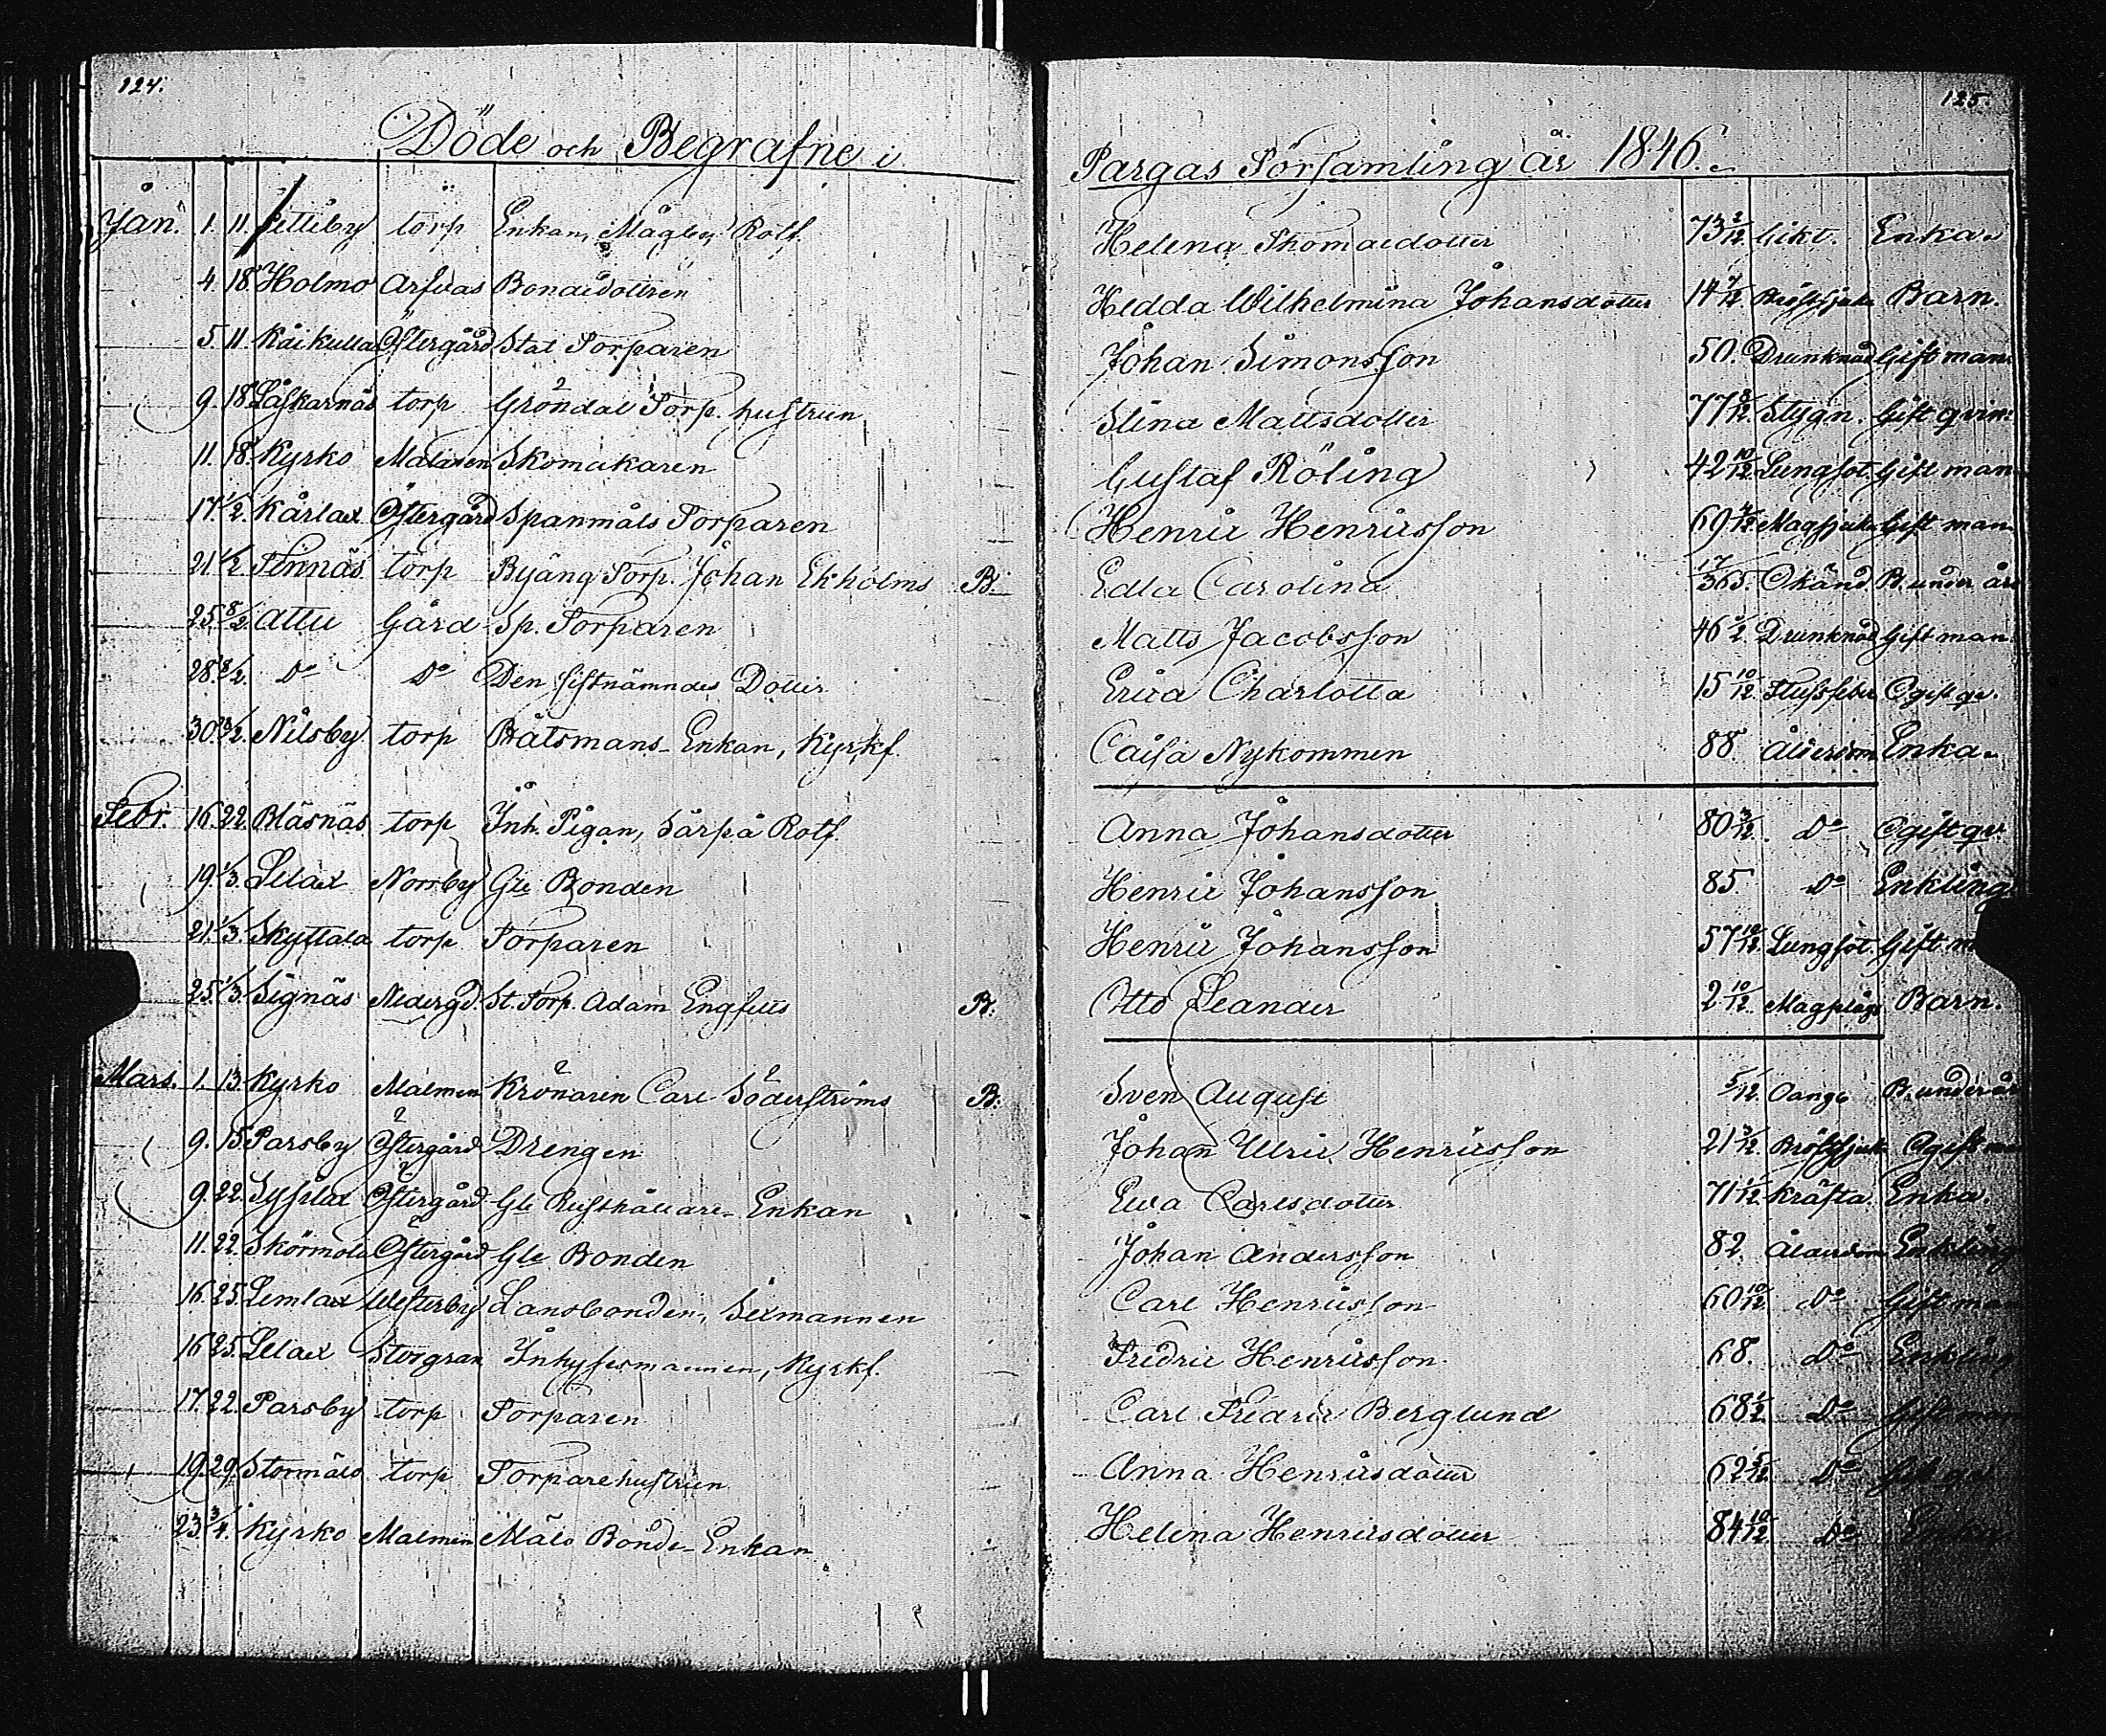 124.
125.
Döde och Begrafne i Pargas Församling år 1846.
Jan. 1. 11. torp Enkan, Mågby Rotf. Helena Thomasdotter 73 2/12. Gikt. Enka.
4. 18. Holmo Arfvas Bondedottren Hedda Wilhelmina Johansdotter 14 Bröstsjuka Barn.
5. 11. Kåikulla Östergård Stat Torparen Johan Simonsson 50. Drunknad Gift man
9. 18. torp Gröndal Torp. hustrun Stina Mattsdotter 77 Stygn. Gift qvin:
11. 18. Kyrko Malmen Skomakaren Gustaf Röling 42 10/12. Lungsot. Gift man
17. 1/2. Kårlax Östergård Spanmåls Torparen Henric Henricsson 69 Magsjuka Gift man
21. 1/2. Finnäs torp Byäng Torp. Johan Ekholms B. Edla Carolina 17/365. Okänd. B. under år
25. 8/2. Attu Gård Sp. Torparen Matts Jacobsson 46 1/2. Drunknad Gift man.
28. 8/2. Do Do Den sistnämndes Dotter Erica Charlotta 15 10/12. Ogift qv.
30. Nilsby torp Båtsmans Enkan, Kyrkf. Caisa Nykommen 88. Ålderdom Enka.
Febr. 16. 22. Bläsnäs torp Inh. Pigan, Särpå Rotf. Anna Johansdotter 80 3/12. Do Ogift qv
19. 1/3. Lelax Norrby Gle Bonden Henric Johansson 85. Do Enkling
21. 1/3. Skyttala torp Torparen Henric Johansson 57 10/12. Lungsot. Gift m
25. 1/3. Signäs Nedergd. St. Torp. Adam Engfelts B. Otto Leander 2 10/12. Magplåga Barn.
Mars. 1. 13. Kyrko Malmen Krönaren Carl Söderströms B. Sven August 5/12. Oange B. under år
9. 15. Parsby Östergård Drengen Johan Ulric Henricsson 21 3/12. Bröstsjuka Ogift m
9. 22. Sysilax Östergård Gle Rusthållare Enkan Eva Carlsdotter 71 1/12. Kräfta. Enka.
11. 22. Skörmola Östergård Gle Bonden Johan Andersson 82. Ålderdom Enkling
16. 25. Lemlax Westerby Lansbonden, Sexmannen Carl Henricsson 60 10/12. Do Gift man
16. 25. Lelax Storgran Inhysesmannen, Kyrkf. Fredric Henricsson 68. Do Enkling
17. 22. Parsby torp Torparen Carl Fredric Berglund 68 1/2. Do Gift man
19. 29. Stormälo torp Torparehustrun Anna Henricsdotter 62 5/12. Do Gift qv
23. 3/4. Kyrko Malmen Mälo Bonde Enkan Helena Henricsdotter 84 10/12. Do Enka